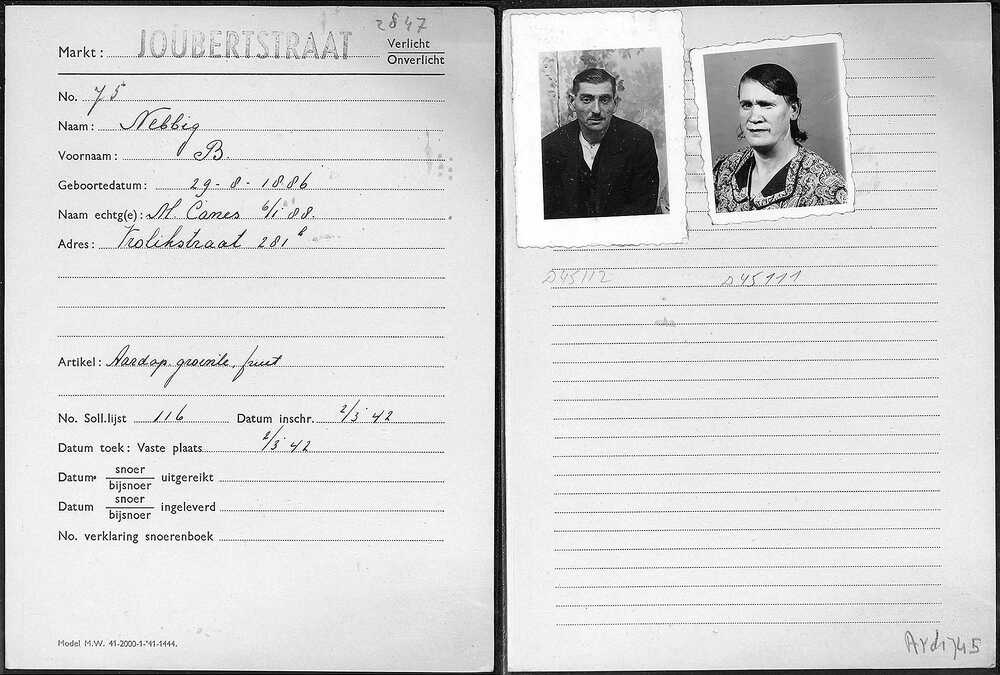 2847
Markt: JOUBERTSTRAAT Verlicht
Onverlicht
No. 75
Naam: Nebbig
Voornaam: B.
Geboortedatum: 29-8-1886
Naam echtg(e): M. Canes 6/1 88.
Adres: Vrolikstraat 281 h
Artikel: Aardap. groente, fruit
No. Soll.lijst 116 Datum inschr. 2/3 42
Datum toek: Vaste plaats 2/3 42
Datum snoer uitgereikt
bijsnoer
Datum snoer ingeleverd
bijsnoer
No. verklaring snoerenboek
Model M.W. 41-2000-1-'41-1444.
D45112 D45111